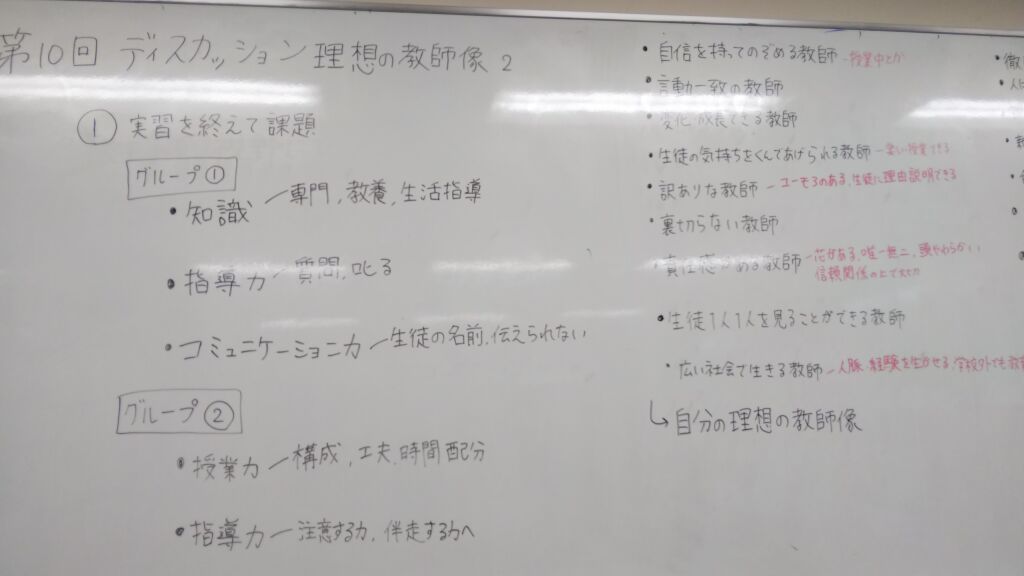 第10回 ディスカッション 理想の教師像 2
① 実習を終えて課題
グループ①
・知識 ー 専門, 教養, 生活指導
・指導力 ー 質問, 叱る
・コミュニケーション力 ー 生徒の名前, 伝えられない
グループ②
・授業力 ー 構成, 工夫, 時間配分
・指導力 ー 注意する力, 伴走する力へ
・自信を持ってのぞめる教師 ー授業中とか
・言動一致の教師
・変化 成長できる教師
・生徒の気持ちをくんであげられる教師
・訳ありな教師 ー ユーモアのある, 生徒に理由説明できる
・裏切らない教師
・責任感がある教師 ー花がある, 唯一無二, 頭やわらかい,
信頼関係の上で
・生徒1人1人を見ることができる教師
・広い社会で生きる教師 ー人脈・経験を生かせる, 学校外でも
↳自分の理想の教師像